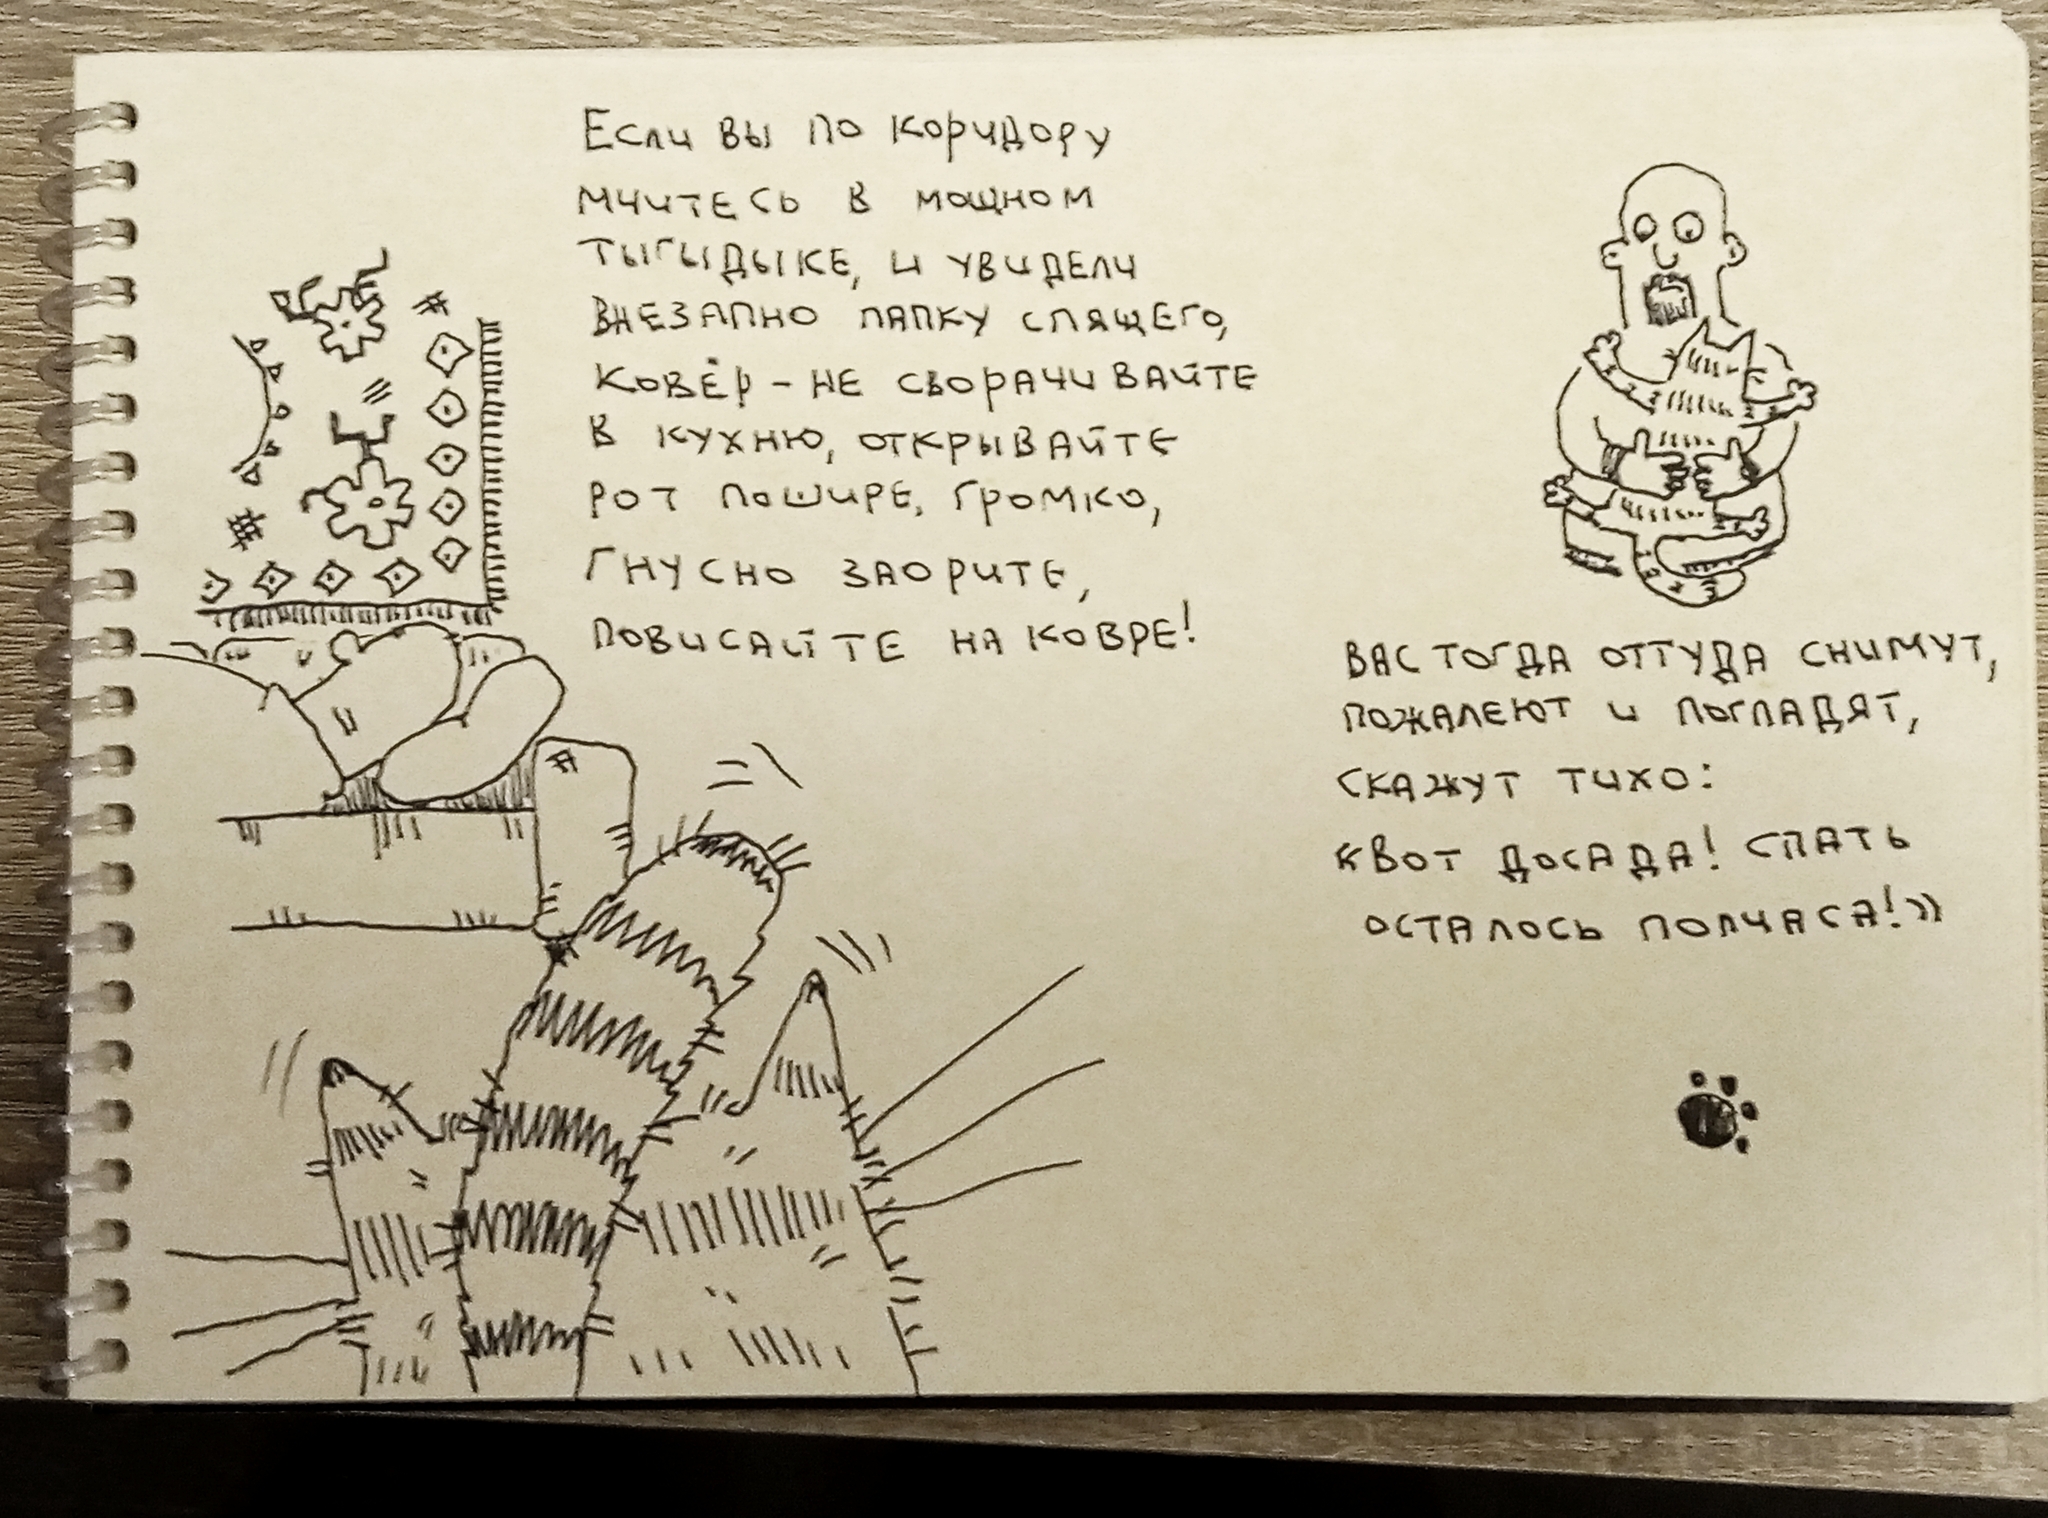 Если вы по коридору
мчитесь в мощном
тыгыдыке, и увидели
внезапно папку спящего,
ковёр - не сворачивайте
в кухню, открывайте
рот пошире, громко,
гнусно заорите,
повисайте на ковре!
Вас тогда оттуда снимут,
пожалеют и погладят,
скажут тихо:
«Вот досада! Спать
осталось полчаса!»